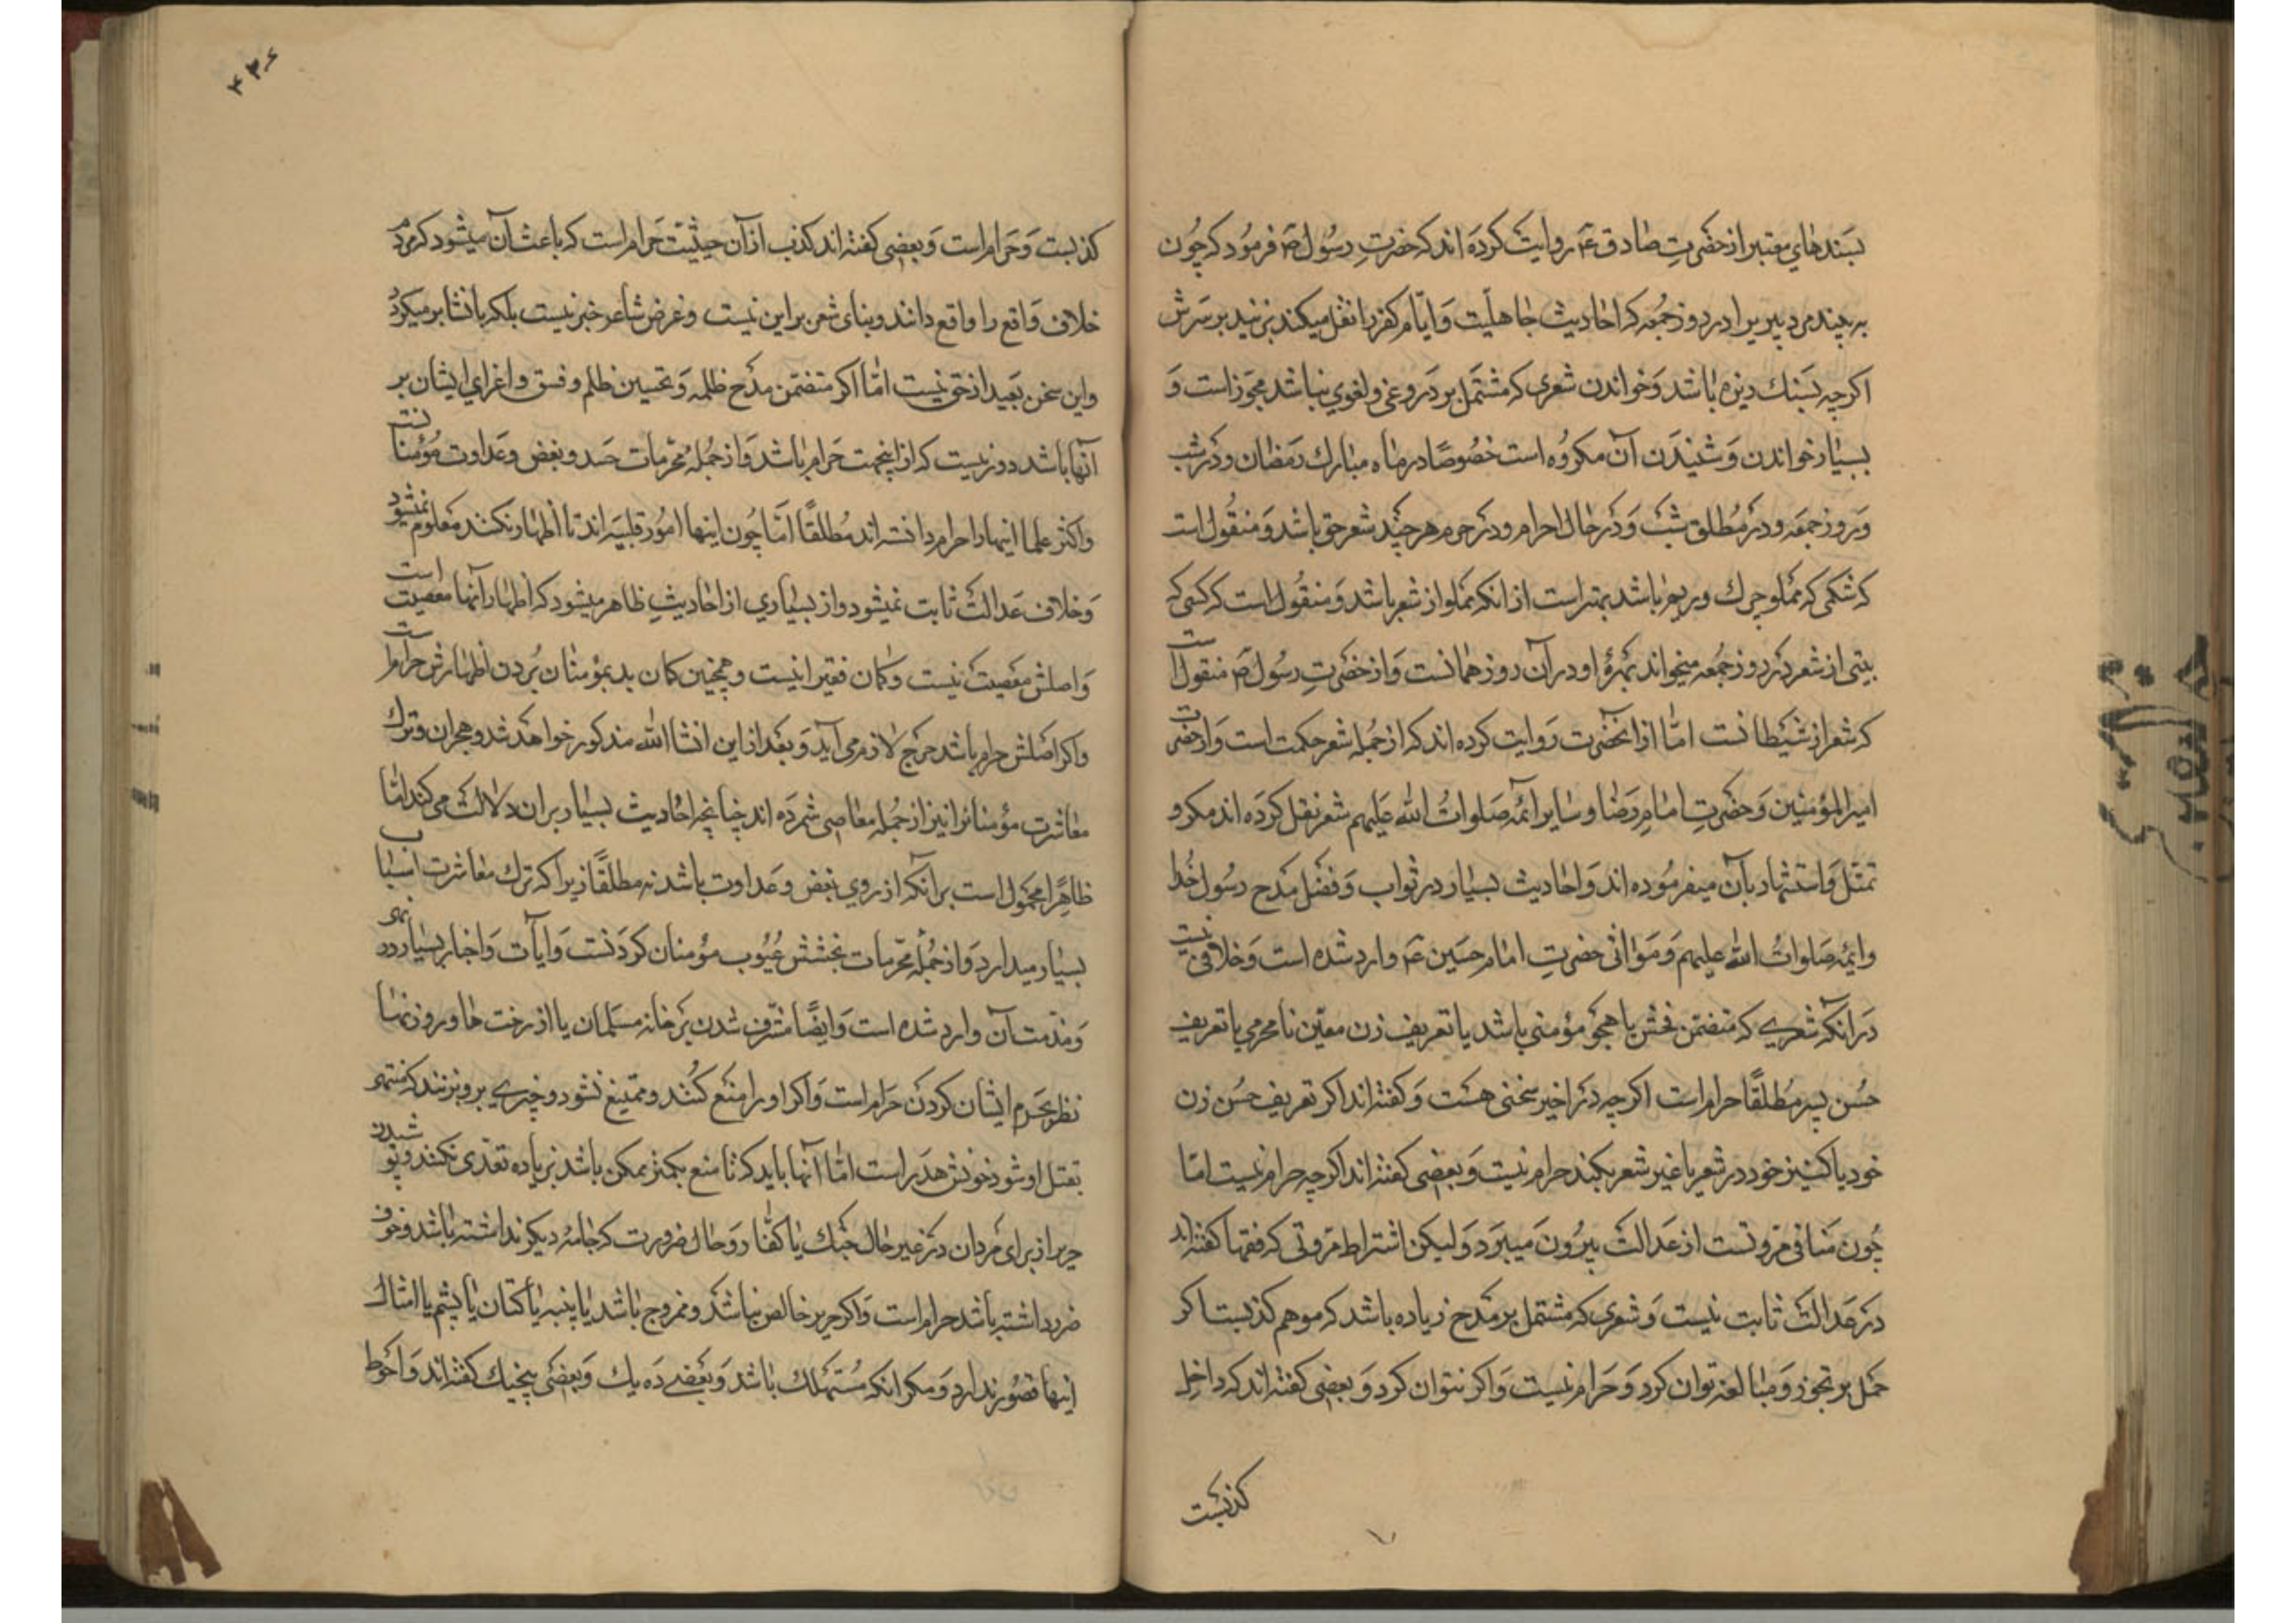 بسندهای معتبر از حضرتِ صادق ع روایت کرده اند که حضرتِ رسُول ص فرمُود که چُون
به بیند مرد پیریرا در روز جمُعه که احادیث جاهلیّت وَ ایّام کفر را نقل میکند بزنید بر سَرش
اکرچه بسَنك ریزه باشد وَ خواندن شعری که مشتمل بر دروغی و لغوی نباشد مجوّز است وَ
بسیار خواندن وَ شنیدَن آن مکروُه است خصُوصًا در ماه مبارك رمَضان و دَر شب
وَ روز جمعَه و دَر مُطلق شبْ وَ دَر حال احرام و دَر حرم هر چند شعر حق باشد وَ منقُول است
که شکمی که مملو چرك و ریم باشد بهتر است از انکه مملو از شعر باشد وَ منقُول است که کسی که
بیتی از شعر دَر روز جمُعه میخواند بَهرهٔ او در آن روز همانست وَ از حضَرتِ رسُول ص منقول است
که شعر از شیَطانست امّا از انحضَرت رَوایت کرده اند که از جمُله شعر حکمت است وَ از حضرت
امیرالمؤمنین وَ حضَرتِ امامِ رَضا و سایر ائمّه صَلواتُ الله عَلیهم شعر نقل کردَه اند مکرر و
تمثّل وَ استشهاد بآن میفرمُوده اند وَ احادیث بسیار در ثواب وَ فضَل مَدح رسُول خدا
و ایمّه صَلواتُ الله علیهم وَ مَراثی حضرتِ امام حسَین ع وارد شده است وَ خلافی نیست
دَر آنکه شعَری که متضمّن فحش یا هجَو مؤمنی باشد یا تعریف زن معیّن نا محرمی یا تعریف
حسُن پسر مُطلقًا حرام است اکرچه دَر اخیر سخنی هسَت وَ کفته اند اکر تعریف حسُن زن
خود یا کنیز خود در شعر یا غیر شعر بکند حرام نیست وَ بعضی کفته اند اکرچه حرام نیست امّا
چُون مَنافی مروّتست از عَدالت بیرُون مَیبرَد وَ لیکن اشتراط مروّتی که فقها کفته اند
دَر عَدالت ثابت نیست وَ شعری که مشتمل بر مَدح زیاده باشد که موهم کذبست اکر
حمَل بر تجوّز وَ مبالغه توان کرد وَ حَرام نیست وَ اکر نتوان کرد وَ بعضی کفته اند که داخل
کذبَست
۴۳۶
کذبست وَ حَرام است وَ بعضی کفته اند کذب از آن حیثیّت حَرام است که باعث آن میشود که مردم
خلاف وَاقع را واقع دانند و بنای شعر بر این نیست و غرض شاعر خبر نیست بلکه بانشا بر میکردد
و این سخن بَعید از حق نیست امّا اکر متضمّن مَدح ظلمه وَ تحسین ظلم و فسق و اغرای ایشان بر
آنها باشد دور نیست که از اینجهت حَرام باشد وَ از جمُله محرّمات حَسد و بغض و عَداوت مُؤمنانست
و اکثر علما اینها را حرام دانسته اند مُطلقًا امّا چُون اینها امُور قلبیّه اند تا اظهار نکنند مَعلوم نمیشود
وَ خلاف عَدالت ثابت نمیشود و از بسیاری از احادیثِ ظاهر میشود که اظهار آنها معصیت است
وَ اصلش مَعصیت نیست و کمان فقیر اینست و همچنین کمان بد بمؤمنان بُردن اظهارش حرام است
و اکر اصَلش حرام باشد حرَج لازم می آید وَ بعَد از این انشا الله مذکور خواهَد شد و هجران و ترك
معاشرت مؤمنانرا نیز از جمُله معَاصی شمرَده اند چنانچه احادیث بسیار بر ان دلالت می کند امّا
ظاهرًا محمُول است بر آنکه از روی بغض و عَداوت باشد نه مطلقًا زیرا که ترك معاشرت اسباب
بسیار میدارد وَ از جمُله محرّمات عیُوب مؤمنان کردَنست وَ ایات وَ اخبار بسیار در نهی
وَ مذمّت آن وارد شده است وَ ایضًا مشرف شدن بَر خانه مسَلمان یا از رخت ها و روزنها
نظر بحَرم ایشان کردَن حَرام است وَ اکر او را منَع کنُند و ممتنع نشود و چیزی بر او بزنند که منتهی
بقتل او شود خونش هدَر است امّا آنها باید که تا منع بکمتر ممکن باشد زیاده تعدّی نکنند و پوشیدن
حریر از برای مَردان دَر غیر حال جَنك با کفّار وَ حال ضرورت که جامهٔ دیکر نداشته باشد و خوف
ضرر داشته باشد حرام است وَ اکر حریر خالص نباشَد و ممزوج باشد یا پنبه یا کتان یا پشم یا امثال
اینها قصوُر ندارد وَ مکر انکه مُستهلك باشد وَ بعَضی دَه یك وَ بعَضی پنجیك کفته اند وَ احَوط